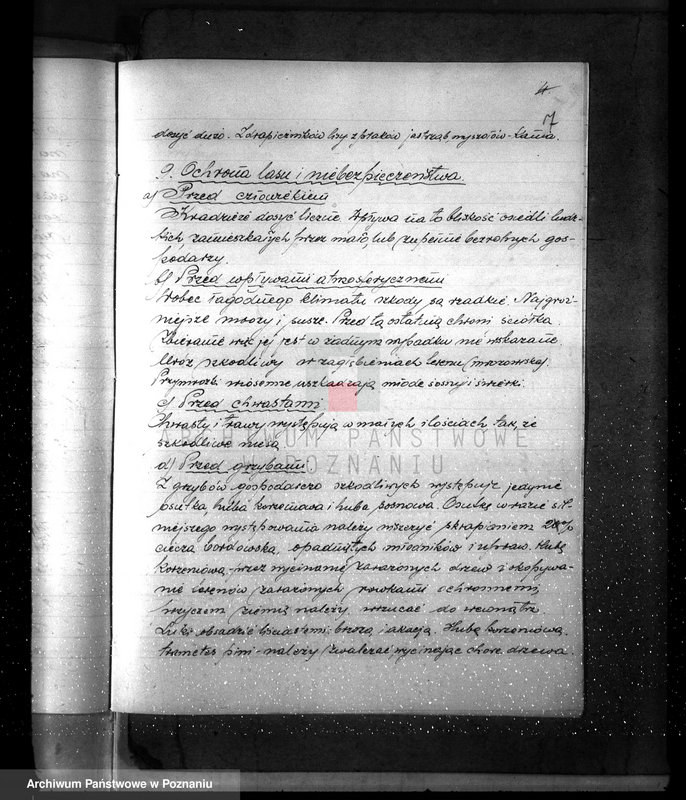 4
7
dosyć dużo. Z drapieżników lisy z ptaków jastrząb, myszołów - Kania.
9. Ochrona lasu i niebezpieczeństwa.
a) Przed człowiekiem
Kradzieże dosyć liczne wpływa na to bliskość osiedli ludz-
kich zamieszkałych przez mało, lub zupełnie bezrolnych gos-
podarzy.
b) Przed wpływami atmosferycznemi
Wobec łagodnego klimatu szkody są rzadkie. Najgroź-
niejsze mrozy i susze. Przed tą ostatnią chroni ściółka
Zbieranie więc jej jest w żadnym wypadku nie wskazane.
Mróz szkodliwy w zagłębieniach terenu (mrozowiska).
Przymrozki wiosenne uszkadzają młode sosny i świerki.
c) Przed chwastami
Chwasty i trawy występują w małych ilościach tak, że
szkodliwe nie są
d) Przed grzybami
Z grzybów gospodarczo szkodliwych występuje jedynie
osutka, huba korzeniowa i huba sosnowa. Osutkę w razie sil-
niejszego występowania należy niszczyć skrapianiem 2%
cieczą bordowską, opadniętych młodników i upraw. Hubę
korzeniową przez wycinanie zarażonych drzew i okopywa-
nie terenów zarażonych rowkami ochronnemi,
przyczem ziemię należy wrzucać do wewnątrz
Luki obsadzić liściastemi: brzozą i akacją. Hubę korzeniową.
trametes pini - należy zwalczać, wycinając chore drzewa
ARCHIWUM PAŃSTWOWE
W POZNANIU
Archiwum Państwowe w Poznaniu